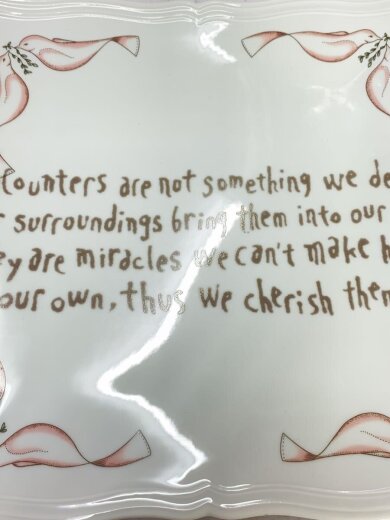 counters are not something we de
surroundings bring them into our
ey are miracles we can't make h
our own, thus we cherish them